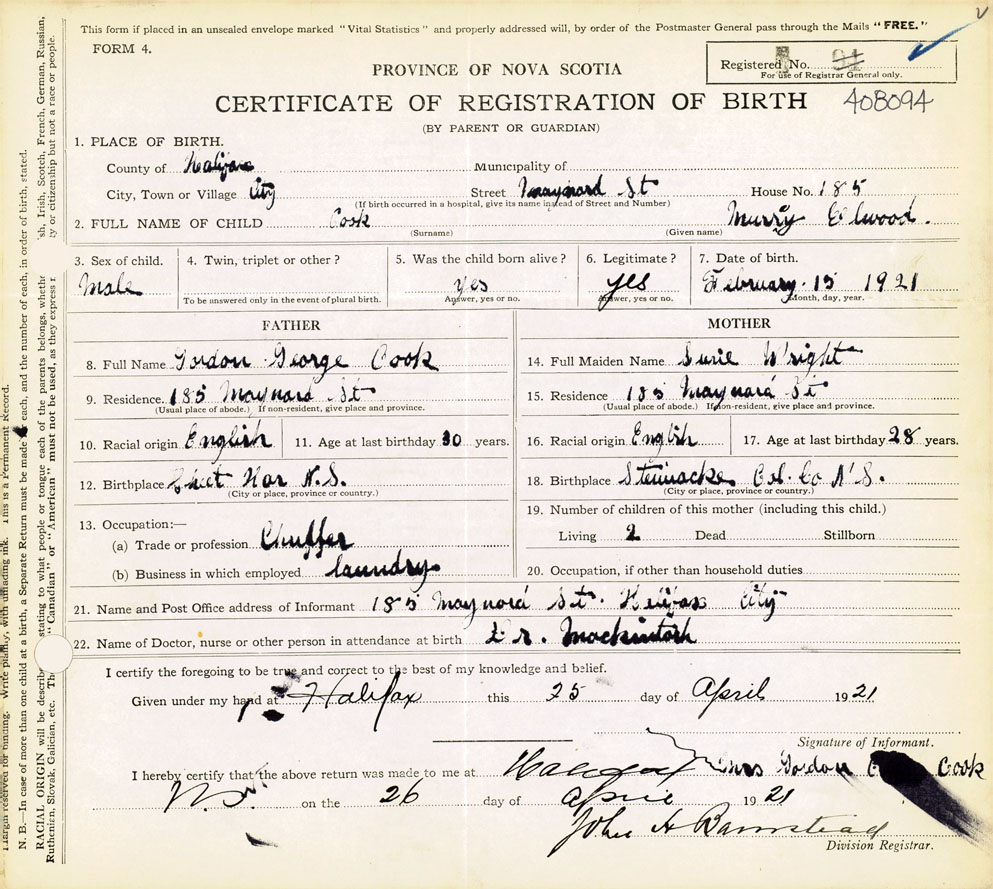 This form if placed in an unsealed envelope marked "Vital Statistics" and properly addressed will, by order of the Postmaster General pass through the Mails "FREE."
FORM 4.
Registered No. 91
For use of Registrar General only.
PROVINCE OF NOVA SCOTIA
CERTIFICATE OF REGISTRATION OF BIRTH 408094
(BY PARENT OR GUARDIAN)
1. PLACE OF BIRTH.
County of Halifax Municipality of
City, Town or Village City Street Maynard St House No. 185
(If birth occurred in a hospital, give its name instead of Street and Number)
2. FULL NAME OF CHILD Cook Murry Elwood.
(Surname) (Given name)
3. Sex of child. 4. Twin, triplet or other? 5. Was the child born alive? 6. Legitimate? 7. Date of birth.
Male yes yes February 15 1921
To be answered only in the event of plural birth. Answer, yes or no. Answer, yes or no. Month, day, year.
FATHER MOTHER
8. Full Name Gordon George Cook 14. Full Maiden Name Susie Wright
9. Residence. 185 Maynard St 15. Residence 185 Maynard St
(Usual place of abode.) If non-resident, give place and province. (Usual place of abode.) If non-resident, give place and province.
10. Racial origin English 11. Age at last birthday 30 years. 16. Racial origin English 17. Age at last birthday 28 years.
12. Birthplace Har N.S. 18. Birthplace Col. Co N.S.
(City or place, province or country.) (City or place, province or country.)
13. Occupation:— 19. Number of children of this mother (including this child.)
(a) Trade or profession Chuffer Living 2 Dead Stillborn
(b) Business in which employed laundry 20. Occupation, if other than household duties
21. Name and Post Office address of Informant 185 Maynard St. Halifax City
22. Name of Doctor, nurse or other person in attendance at birth Dr. Mackintosh
I certify the foregoing to be true and correct to the best of my knowledge and belief.
Given under my hand at Halifax this 25 day of April 1921
Signature of Informant.
I hereby certify that the above return was made to me at Halifax Mrs Gordon Cook
N.S. on the 26 day of April 1921
John A Barnstead
Division Registrar.
Margin reserved for binding. Write plainly, with unfading ink. This is a Permanent Record.
N. B.—In case of more than one child at a birth, a Separate Return must be made each, and the number of each, in order of birth, stated.
RACIAL ORIGIN will be describe stating to what people or tongue each of the parents belongs, wheth sh, Irish, Scotch, French, German, Russian,
Ruthenian, Slovak, Galician, etc. Th "Canadian" or "American" must not be used, as they express ty or citizenship but not a race or people.